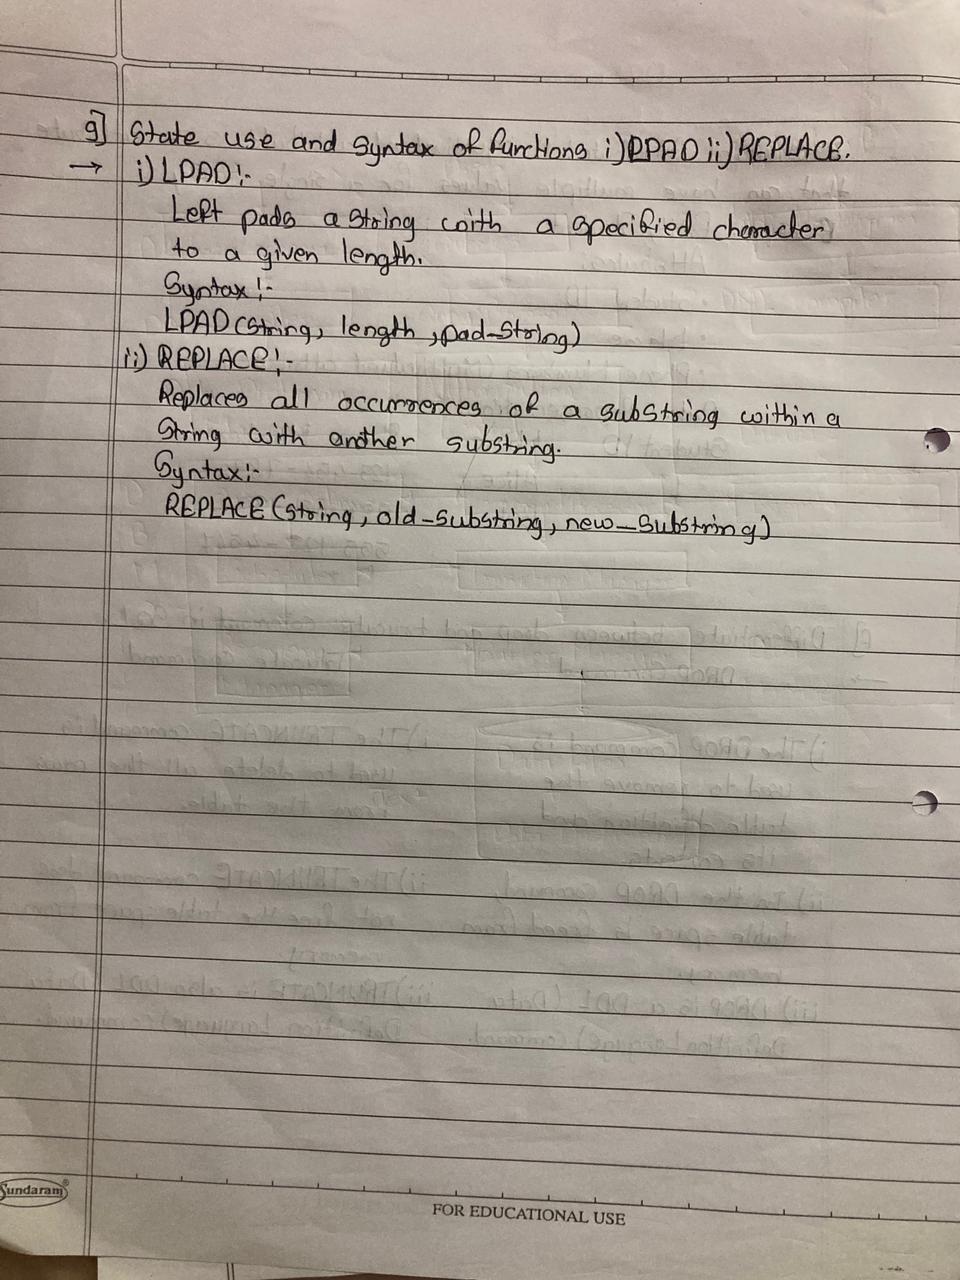 g] State use and Syntax of functions i) DPAD ii) REPLACE.
→ i) LPAD :-
Left pads a string with a specified character
to a given length.
Syntax :-
LPAD (String, length, pad-String)
ii) REPLACE :-
Replaces all occurrences of a substring within a
String with another substring.
Syntax :-
REPLACE (String, old_substring, new_substring)
Sundaram®
FOR EDUCATIONAL USE